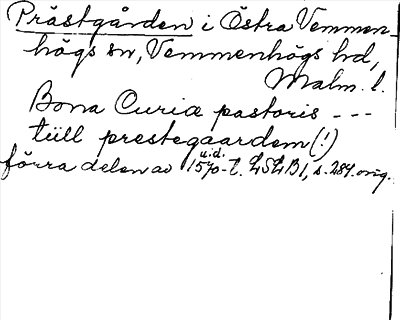 Prästgården i Östra Vemmen-
högs sn, Vemmenhögs hd,
Malm. l.
Bona Curiæ pastoris ---
tüll prestegaardem (!)
u.d.
förra delen av 1570-t. LSLB1, s. 284. orig.